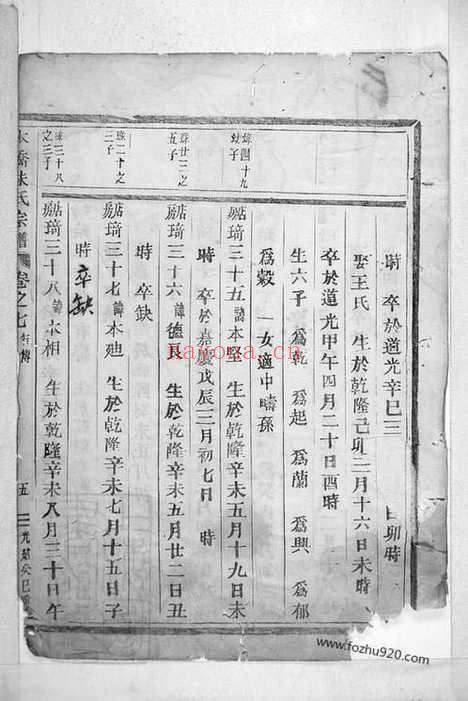 時 卒於道光辛巳三 日卯時
娶王氏 生於乾隆己卯二月十六日未時
卒於道光甲午四月二十日酉時
生六子 爲乾 爲起 爲蘭 爲興 爲郁
爲穀 一女適中疇孫
琥四十九
幼子
琥琦三十五 諱本坚 生於乾隆辛未五月十九日未
時 卒於嘉慶戊辰三月初七日 時
琥廿三之
五子
琥琦三十六 諱德良 生於乾隆辛未五月廿二日丑
時 卒缺
琥二十之
三子
琥琦三十七 諱本廸 生於乾隆辛未七月十五日子
時 卒缺
琥三十八
之三子
琥琦三十八 諱本相 生於乾隆辛未八月三十日午
朱氏宗譜 卷之七 行傳 五 光緒癸巳
nayona.cn
www.fozhu920.com